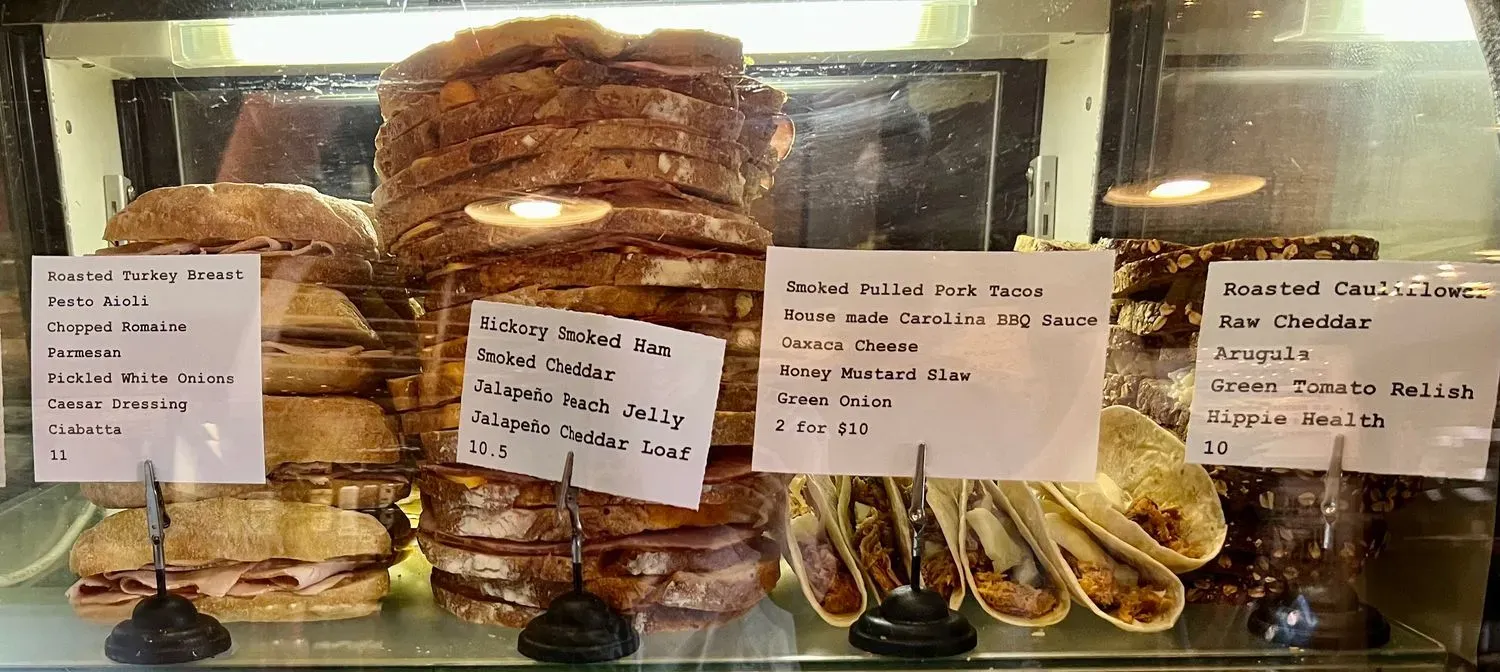 Roasted Turkey Breast
Pesto Aioli
Chopped Romaine
Parmesan
Pickled White Onions
Caesar Dressing
Ciabatta
11
Hickory Smoked Ham
Smoked Cheddar
Jalapeño Peach Jelly
Jalapeño Cheddar Loaf
10.5
Smoked Pulled Pork Tacos
House made Carolina BBQ Sauce
Oaxaca Cheese
Honey Mustard Slaw
Green Onion
2 for $10
Roasted Cauliflower
Raw Cheddar
Arugula
Green Tomato Relish
Hippie Health
10